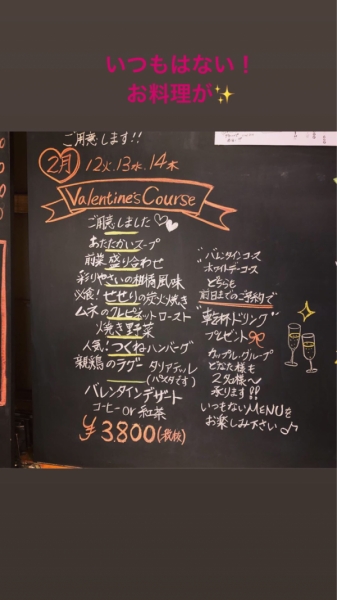 いつもはない！
お料理が✨
ご用意します!!
2月 12火.13水.14木
Valentine's Course
ご用意しました
あたたかいスープ
前菜盛り合わせ
彩りやさいの柑橘風味
せせりの炭火焼き
ムネのクレピネットロースト
焼き野菜
人気！つくねハンバーグ
親鶏のラグー タリアテッレ
(パスタです)
バレンタインデザート
コーヒー or 紅茶
¥3.800(税抜)
バレンタインコース
ホワイトデーコース
どちらも
前日までのご予約で
乾杯ドリンク
プレゼント
カップル、グループ
どなた様も
2名様〜
承ります!!
いつもないMENUを
お楽しみ下さい♪